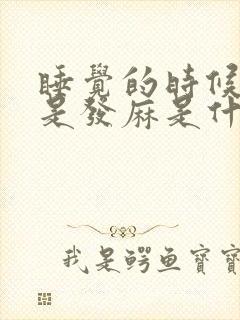 睡覺的時候
是發麻是什
我是鳄鱼寶寶